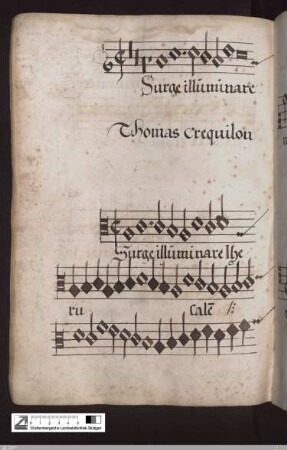 Surge illuminare
Thomas Crequilon
Surge illuminare Ihe
ru salē
Württembergische Landesbibliothek Stuttgart